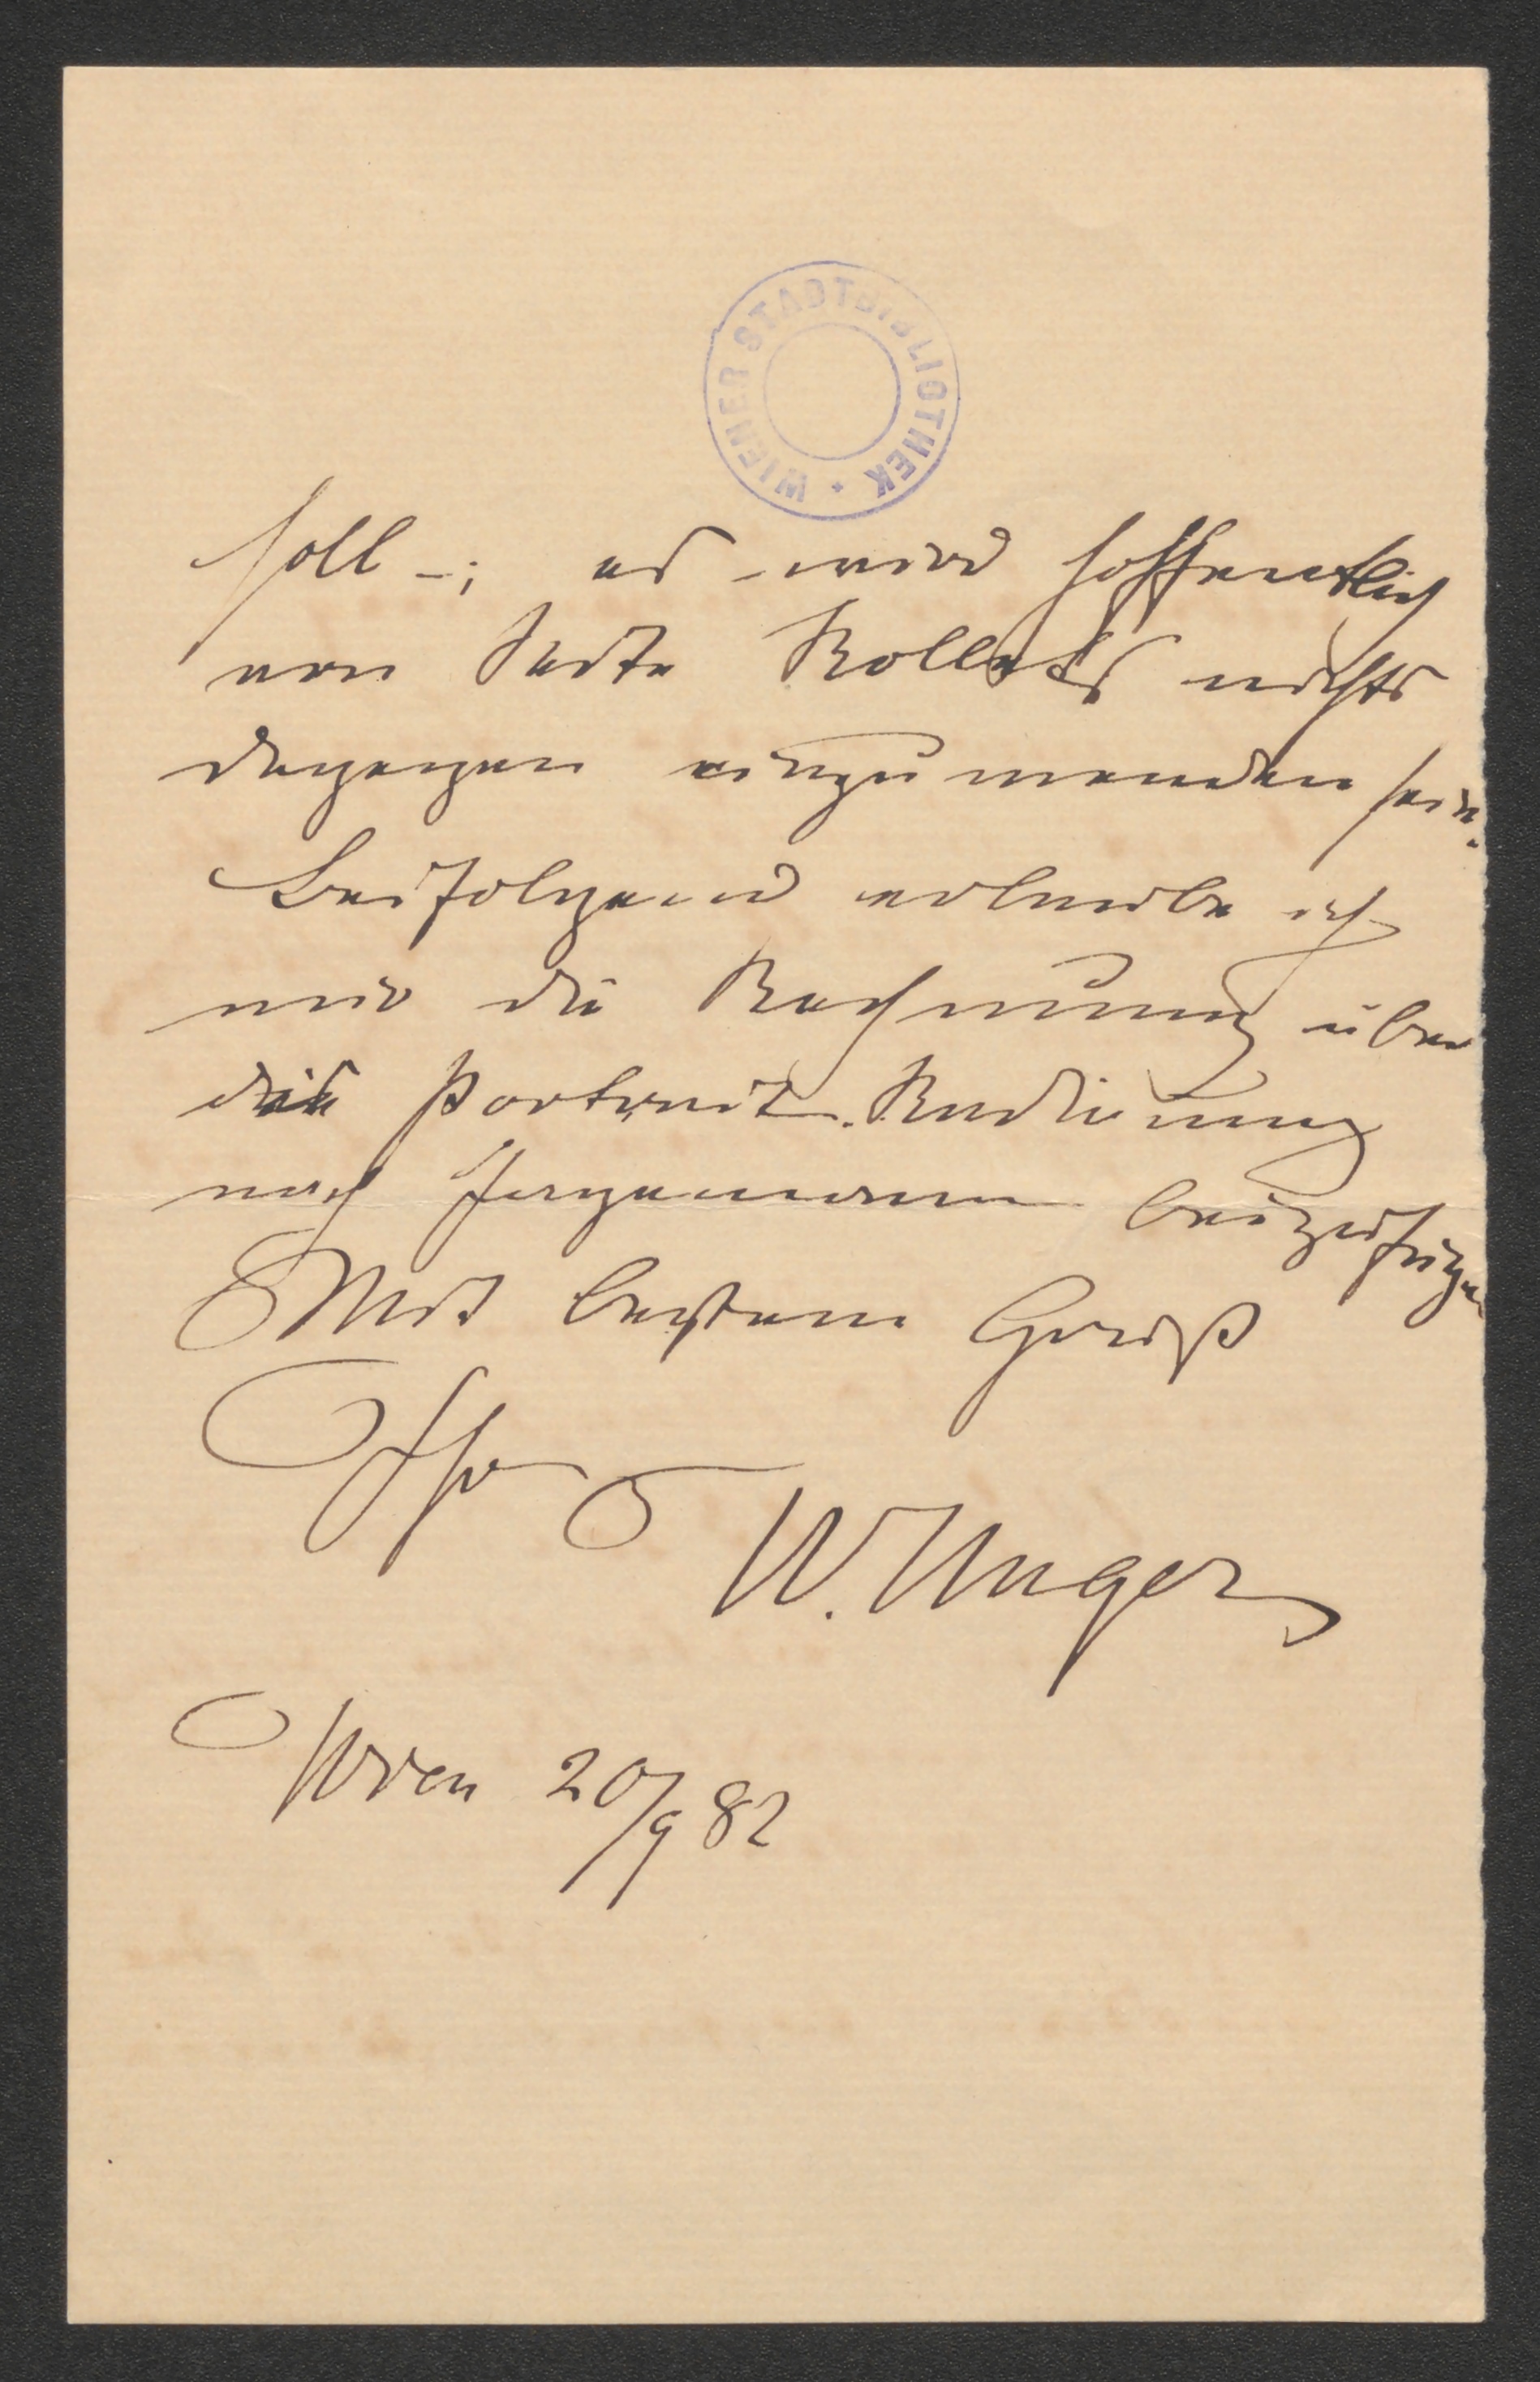 WIENER STADTBIBLIOTHEK
soll –; es wird hoffentlich
von Seite Rolletts nichts
dagegen einzuwenden sein.
Beifolgend erlaube ich
mir die Rechnung über
die Portrait-Radierung
nach beizufügen
Mit bestem Gruß
Ihr
W. Unger
Wien 20/9 82